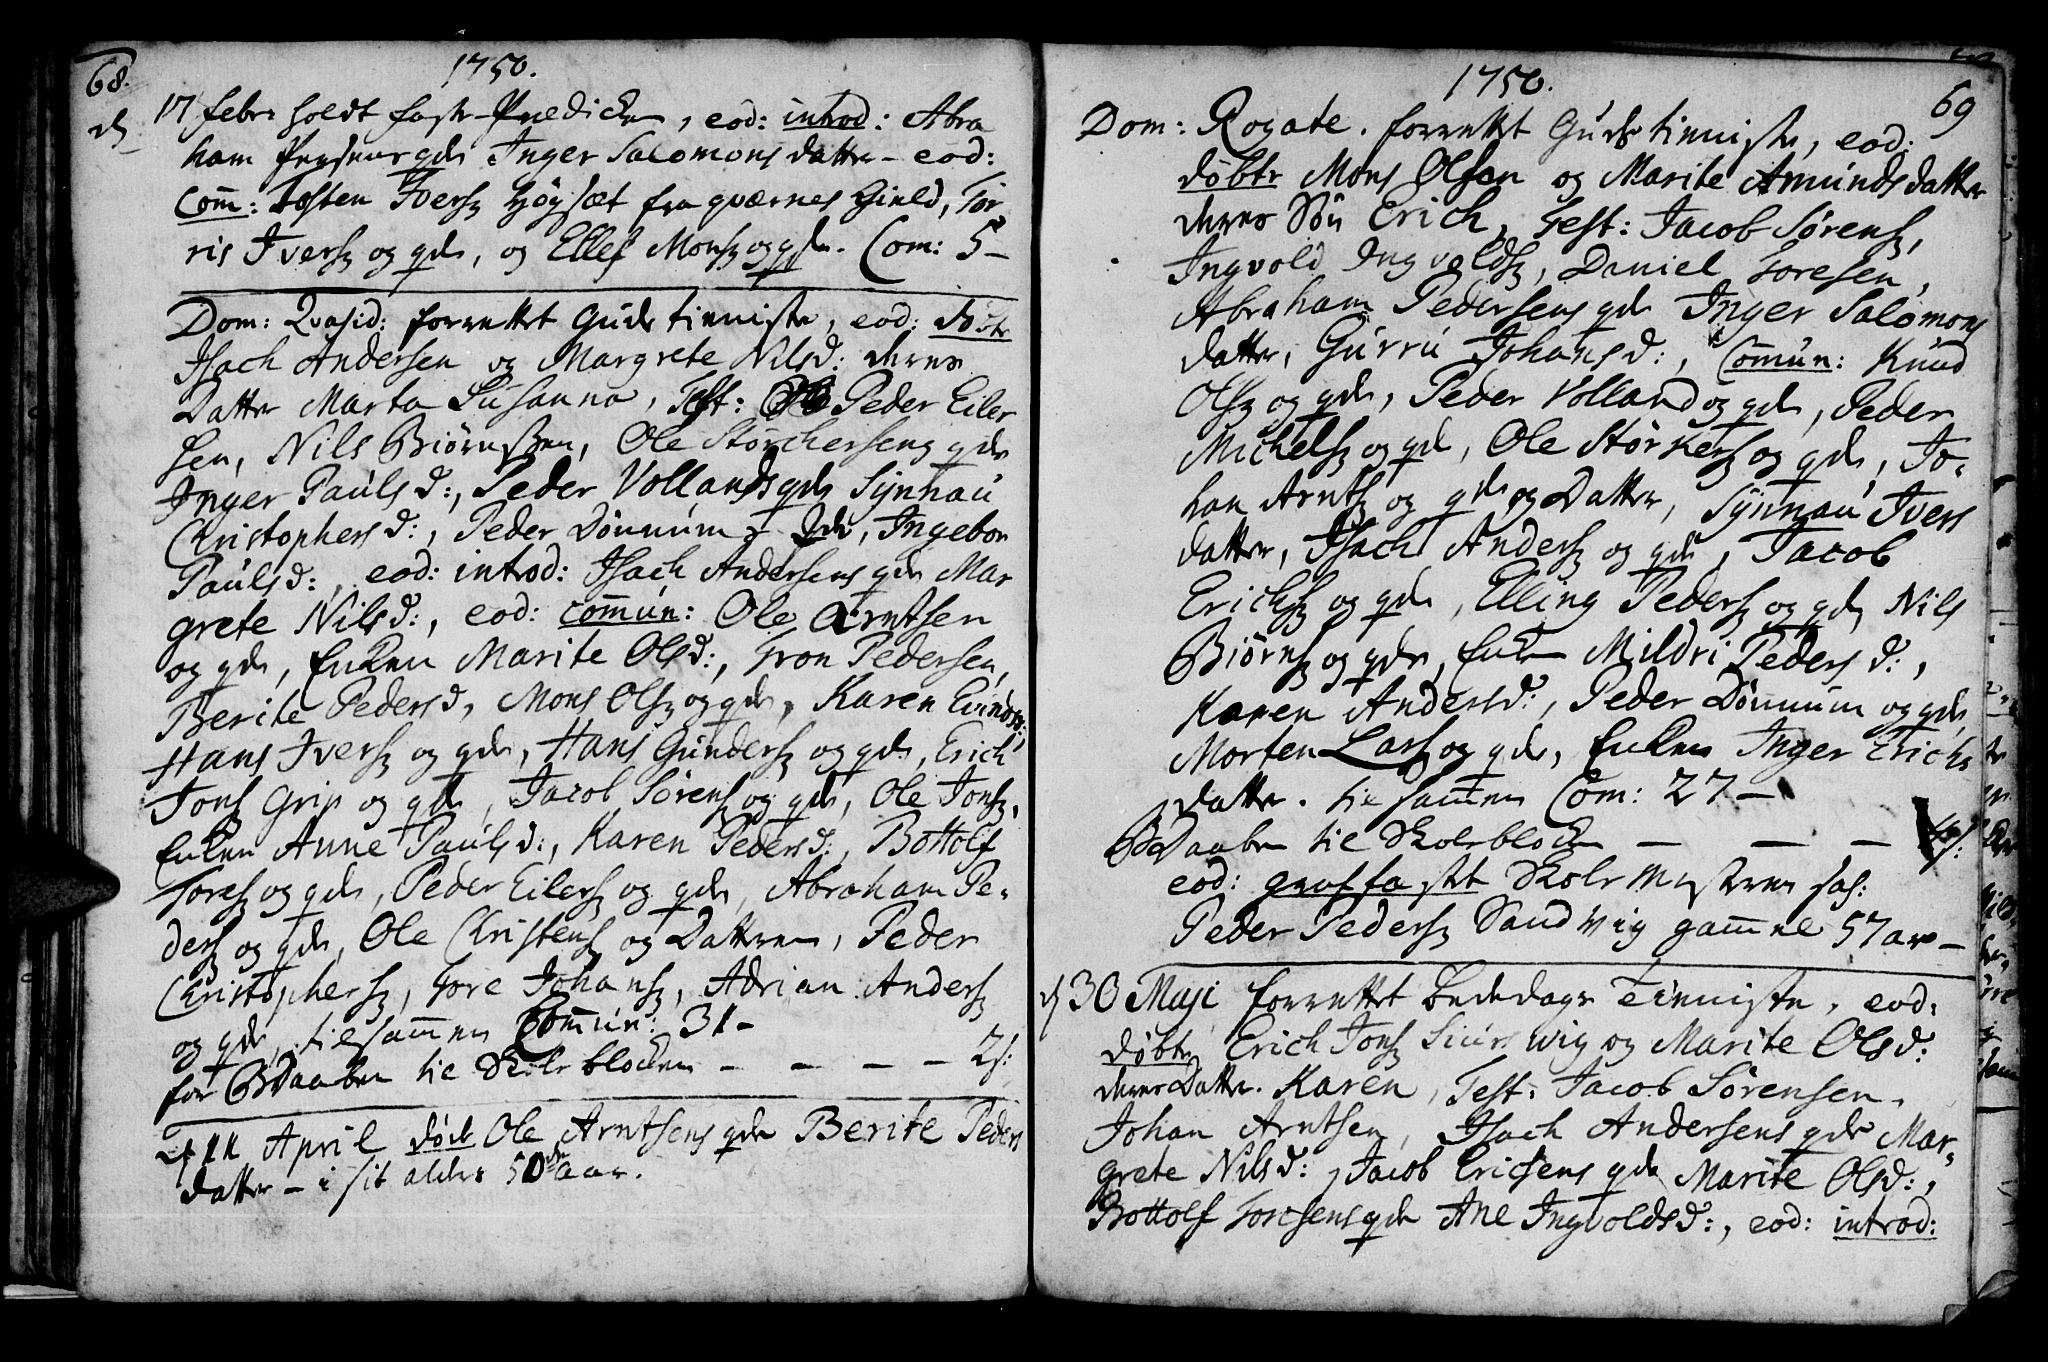 68.
1750.
d 17 febr: holdt faste Prædicken, eod: introd: Abra
ham Pedersens qde Inger Salomonsdatter - eod:
Com̄: Tosten Iversz Høgsæt fra qværnes Gield, Tor
ris Iversz og qde, og Ellef Monsz og qde. Com: 5 -
Dom: Qvasid: forrettet Gudstienniste, eod: døbte
Isach Andersen og Margrete Nilsd: deres
Datter Marta Susanna, Test: Peder Eiler
sen, Nils Biørnssen, Ole Størchersens qde
Inger Paulsd:, Peder Vollands qde Synnau
Christophersd:, Peder Dønnum, Ingebor
Paulsd:, eod: introd: Isach Andersens qde Mar
grete Nilsd:, eod: com̄un: Ole Arntsen
og qde, Enken Marite Olsd:, Tron Pedersen,
Berite Pedersd, Mons Olsz og qde, Karen Evindsd:,
Hans Iversz og qde, Hans Gundersz og qde, Erich
Jonsz Grip og qde, Jacob Sørensz og qde, Ole Jonsz,
Enken Anne Paulsd:, Karen Pedersd:, Bottolf
Toresz og qde, Peder Eilersz og qde, Abraham Pe-
dersz og qde, Ole Christensz og Datteren, Peder
Christophersz, Tore Johansz, Adrian Andersz
og qde, tilsam̄en Com̄un: 31 -
for Daaben til Skoleblocken - - - - 2 s:
d 11 April døde Ole Arntsens qde Berite Peders
datter - i sit alders 50de aar.
1750.
69
Dom: Rogate. forrettet Gudstienniste, eod:
døbte Mons Olsen og Marite Amundsdatter
deres Søn Erich, Test: Jacob Sørensz,
Ingvold Ingvoldsz, Daniel Toresen,
Abraham Pedersens qde Inger Salomons
datter, Gurru Johansd:, Com̄un: Knud
Olsz og qde, Peder Volland og qde, Peder
Michelsz og qde, Ole Størkersz og qde, Jo-
han Arntsz og qde og Datter, Synnau Ivers
datter, Isach Andersz og qde, Jacob
Erichsz og qde, Elling Pedersz og qde, Nils
Biørnsz og qde, Enken Mildri Pedersd:,
Karen Andersd:, Peder Dønnum og qde,
Morten Larsz og qde, Enken Inger Erichs
datter. til sam̄en Com: 27 -
Daaben til Skoleblocken - - -
eod: grafføstet Skolemesteren sal:
Peder Pedersz Sandwig gam̄el 57 aar -
d 30 Maji forrettet Bededags Tienniste, eod:
døbte Erich Jonsz wig og Marite Olsd:
deres Datter. Karen, Test: Jacob Sørensen,
Johan Arntsen, Isach Andersens qde Mar-
grete Nilsd:, Jacob Ericsens qde Marite Olsd:,
Bottolf Toresens qde Ane Ingvoldsd:, eod: introd: